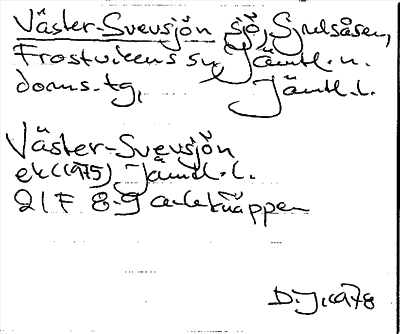 Väster-Svensjön sjö, Gjulsåsen,
Frostvikens sn, Jämtl. n.
doms.tg, Jämtl.l.
Väster-Svensjön
ek (1975) Jämtl.l.
21F 8-9
D.J. 1978